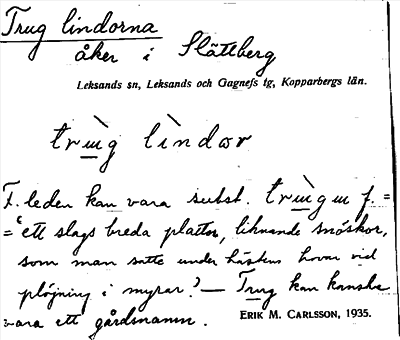 Trug lindorna
åker i Slättberg
Leksands sn, Leksands och Gagnefs tg, Kopparbergs län.
trùg lìndor
F. leden kan vara subst. trùgu f. =
= 'ett slags breda plattor, liknande snöskor,
som man satte under hästens hovar vid
plöjning i myrar? — Trug kan kanske
vara ett gårdsnamn.
ERIK M. CARLSSON, 1935.